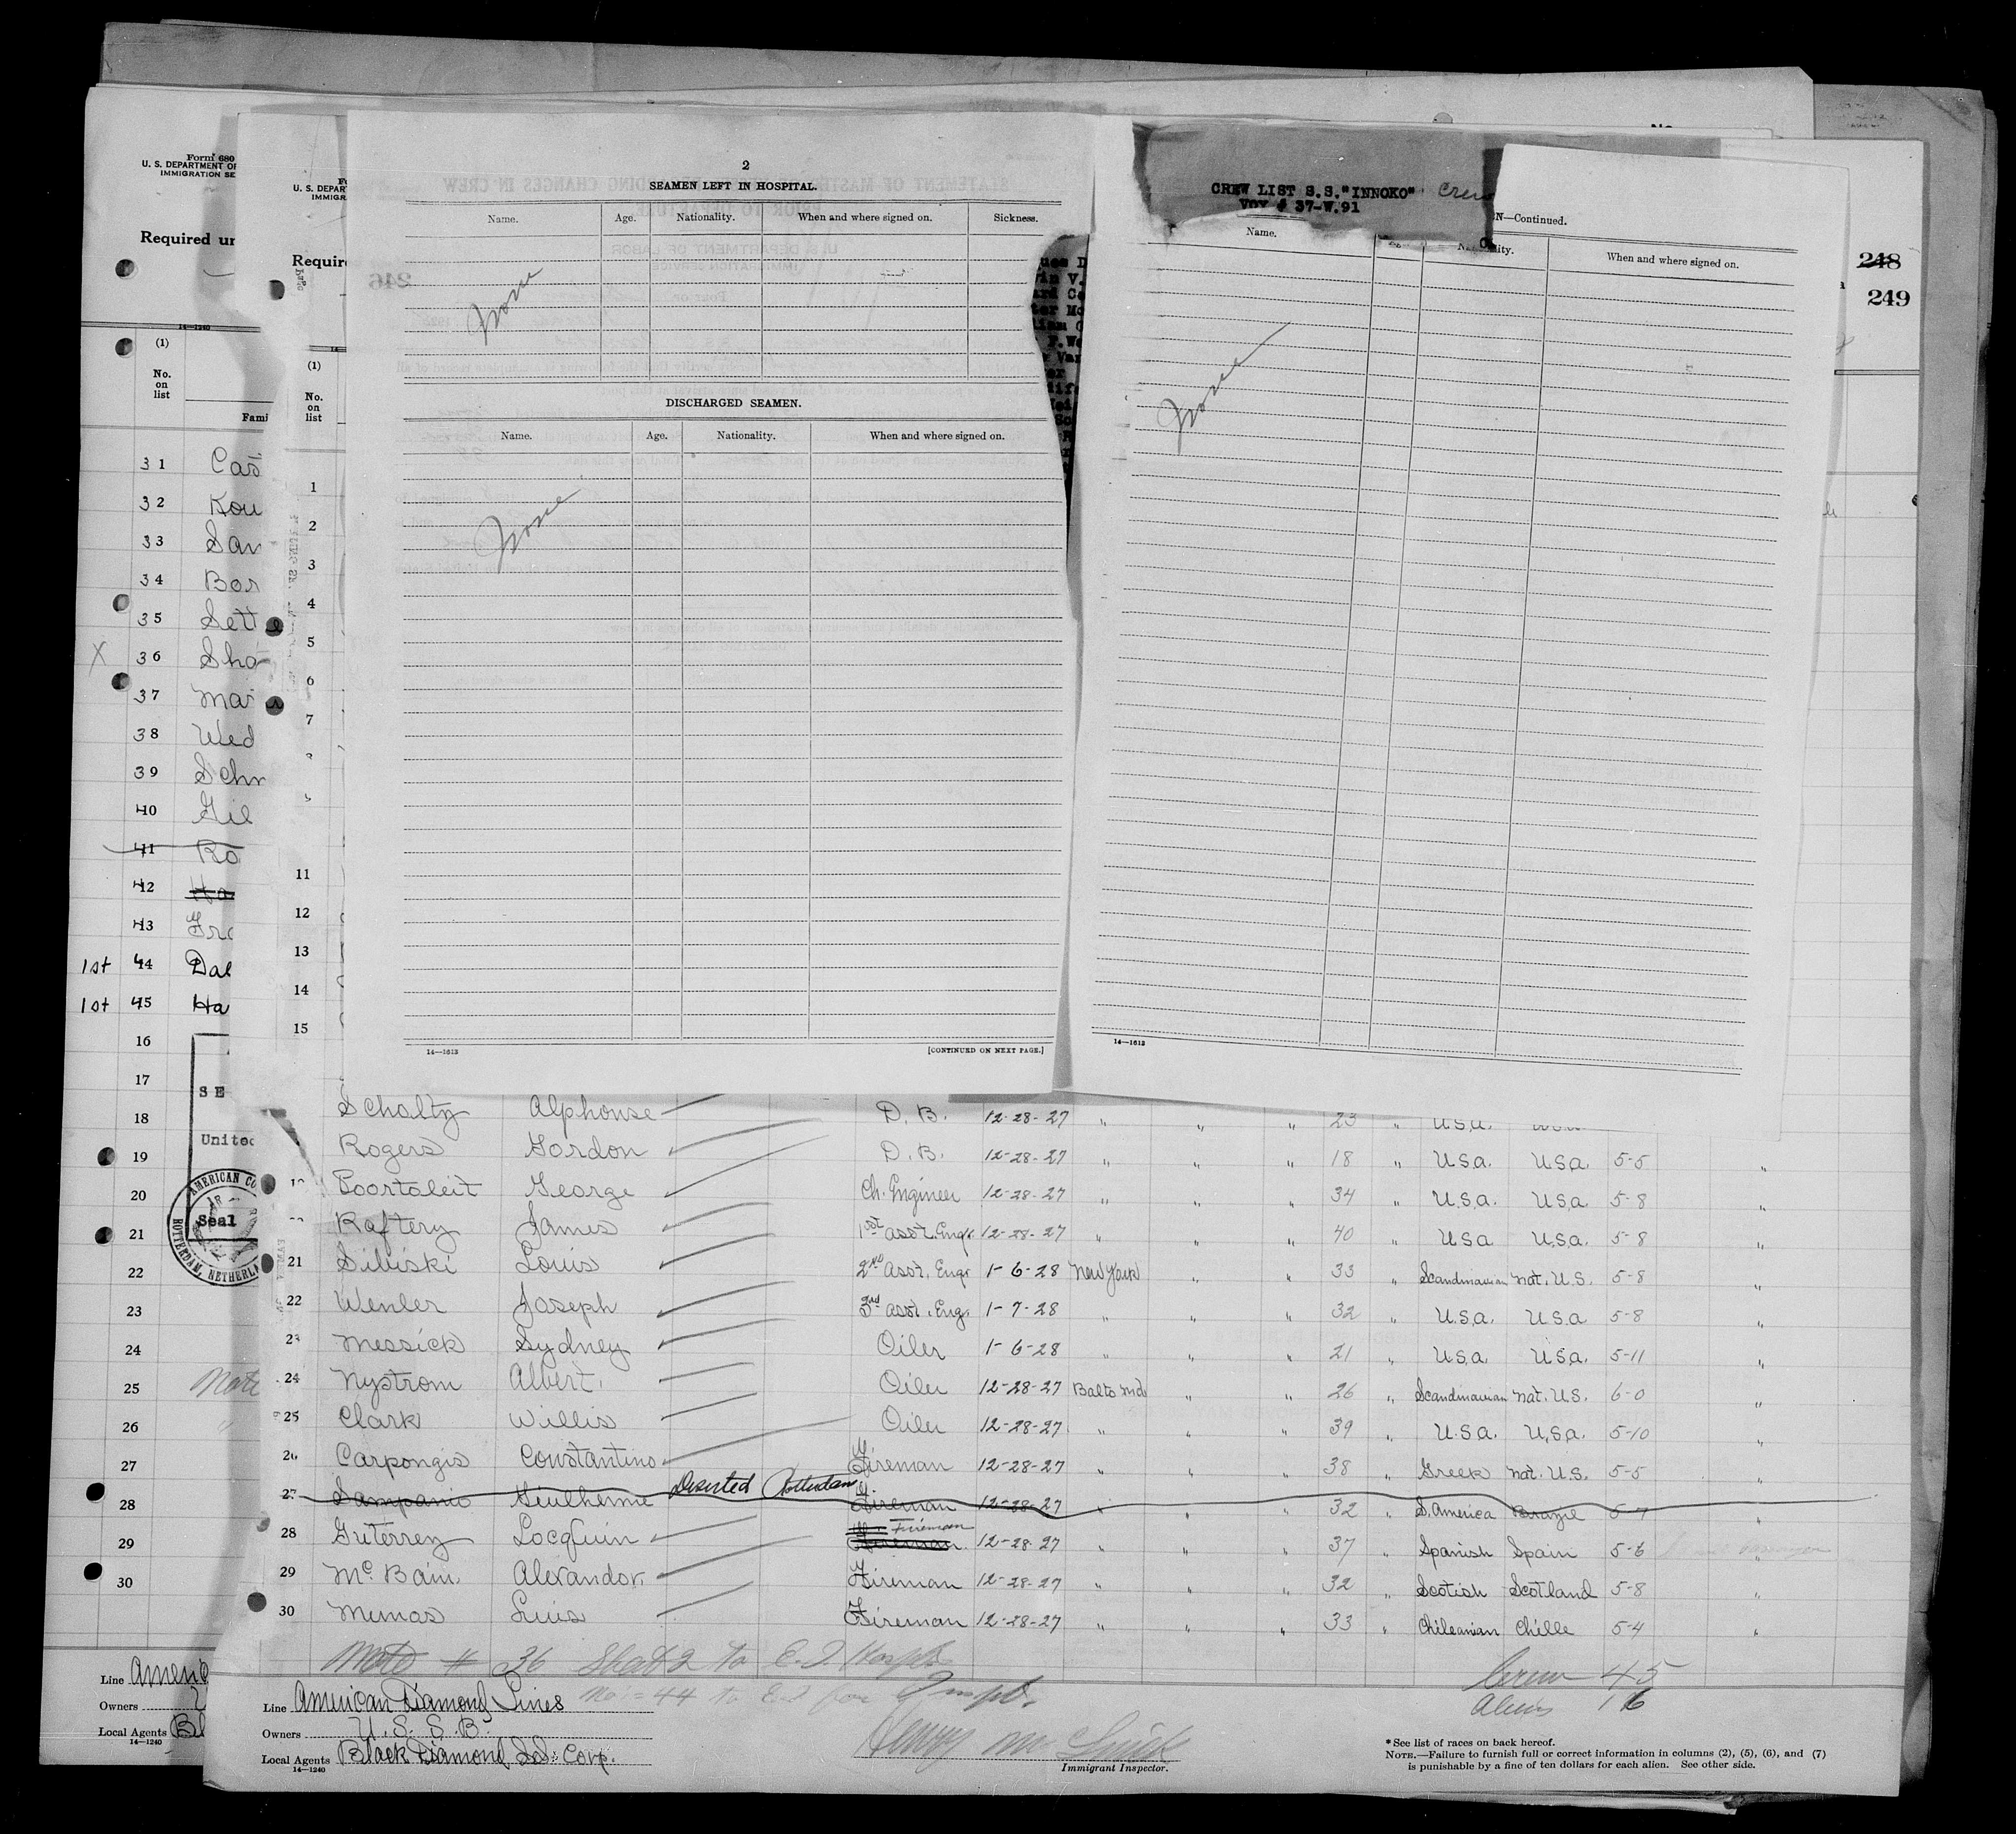 2
SEAMEN LEFT IN HOSPITAL.
Name. Age. Nationality. When and where signed on. Sickness.
None
DISCHARGED SEAMEN.
Name. Age. Nationality. When and where signed on.
None
14—1613 [CONTINUED ON NEXT PAGE.]
CREW LIST S.S."INNOKO" Crew
VOY # 37-W.91
N—Continued.
Name. When and where signed on.
None
14—1613
248
249
Form 680
U. S. DEPARTMENT OF
IMMIGRATION SE
Required un
14—1240
(1)
No.
on
list
Fami
31 Cas
32 Kou
33 San
34 Bor
35 Sett
X 36 Sha
37 Mar
38 Wed
39 Schr
40 Gil
41 Ro
42 Ha
43 Fra
1st 44 Dal
1st 45 Ha
16
17
18
19
20
21
22
23
24
25 Note
26 "
27
28
29
30
SE
United
Seal
AMERICAN CO
ROTTERDAM, NETHERL
Line Americ
Owners
Local Agents Bl
14—1240
U. S. DEPAR
IMMIGR
Require
(1)
No.
on
list
1
2
3
4
5
6
7
11
12
13
14
15
Scholtz Alphonse D. B. 12-28-27 " " " 23 " U.S.A.
Rogers Gordon D. B. 12-28-27 " " " 18 " U.S.A. U.S.A. 5-5 "
George Ch. Engineer 12-28-27 " " " 34 " U.S.A. U.S.A. 5-8 "
Raftery James 1st Asst. Engr. 12-28-27 " " " 40 " U.S.A. U.S.A. 5-8 "
21 Sibiski Louis 2nd Asst. Engr 1-6-28 New York " " 33 " Scandinavian Nat. U.S. 5-8 "
22 Wenler Joseph 3rd Asst. Eng. 1-7-28 " " " 32 " U.S.A. U.S.A. 5-8 "
23 Messick Sydney Oiler 1-6-28 " " " 21 " U.S.A. U.S.A. 5-11 "
24 Nystrom Albert. Oiler 12-28-27 Balto Md " " 26 " Scandinavian Nat. U.S. 6-0 "
25 Clark Willis Oiler 12-28-27 " " " 39 " U.S.A. U.S.A. 5-10 "
26 Carpongis Constantino Fireman 12-28-27 " " " 38 " Greek Nat. U.S. 5-5 "
27 Sampanio Guilherme Deserted Rotterdam Fireman 12-28-27 " " " 32 " S. America Brazil 5-7 "
28 Guterrez Locquin Fireman Fireman 12-28-27 " " " 37 " Spanish Spain 5-6 "
29 McBain Alexandor. Fireman 12-28-27 " " " 32 " Scotish Scotland 5-8 "
30 Munas Luis Fireman 12-28-27 " " " 33 " Chileanian Chille 5-4 "
Note # 36 Sheet 2 to E. I. Hospt
Crew 45
Aliens 16
Line American Diamond Lines No = 44 to E.I. for
Owners U. S. S. B.
Local Agents Black Diamond S.S. Corp.
14—1240
Henry
Immigrant Inspector.
* See list of races on back hereof.
NOTE.—Failure to furnish full or correct information in columns (2), (5), (6), and (7)
is punishable by a fine of ten dollars for each alien. See other side.